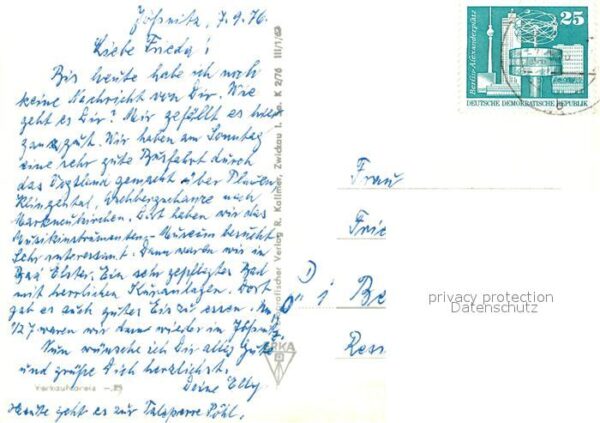 Jößnitz, 7.9.76.
Liebe Frieda!
Bis heute habe ich noch
keine Nachricht von Dir. Wie
geht es Dir? Mir gefällt es hier
ganz gut. Wir haben am Sonntag
eine sehr gute Busfahrt durch
das Vogtland gemacht über Plauen
Klingental, Aschbergschanze nach
Markneukirchen. Dort haben wir das
Musikinstrumenten-Museum besucht
Sehr interessant. Dann waren wir in
Bad Elster. Ein sehr gepflegtes Bad
mit herrlichen Kuranlagen. Dort
gab es auch gutes Eis zu essen. Um
1/2 7 waren wir dann wieder in Jößnitz.
Nun wünsche ich Dir alles Gute
und grüße Dich herzlichst.
Deine Elly
Heute geht es zur Talsperre Pöhl.
Verkaufspreis
Verlag R. Kallmer, Zwickau K 2/76 III/1/69
25
Berlin-Alexanderplatz
DEUTSCHE DEMOKRATISCHE REPUBLIK
Frau
Frie
Be
Ress
privacy protection
Datenschutz